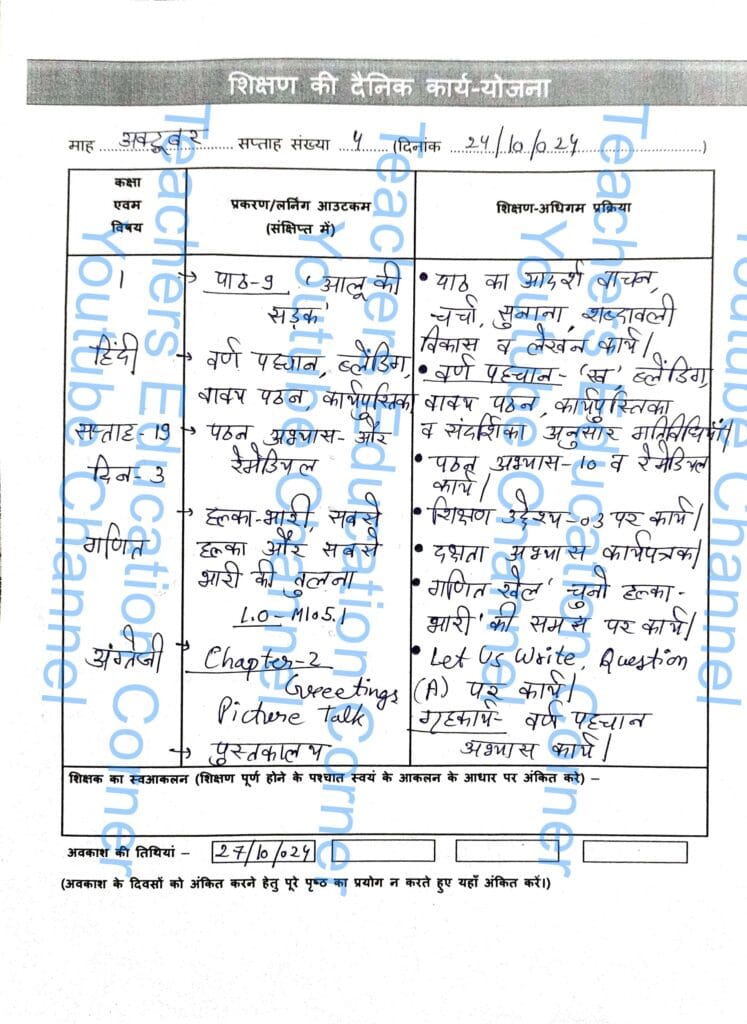 शिक्षण की दैनिक कार्य-योजना
माह अक्टूबर सप्ताह संख्या 4 (दिनांक 24/10/024)
कक्षा
एवम
विषय
प्रकरण/लर्निंग आउटकम
(संक्षिप्त में)
शिक्षण-अधिगम प्रक्रिया
1
हिंदी
सप्ताह-19
दिन-3
→ पाठ-9 'आलू की
सड़क'
→ वर्ण पहचान, ब्लेंडिंग,
वाक्य पठन, कार्यपुस्तिका
→ पठन अभ्यास- और
रेमेडियल
• पाठ का आदर्श वाचन,
चर्चा, सुनाना, शब्दावली
विकास व लेखन कार्य।
• वर्ण पहचान- 'ख' ब्लेंडिंग,
वाक्य पठन, कार्यपुस्तिका
व संदर्शिका अनुसार गतिविधियाँ।
• पठन अभ्यास-10 व रेमेडियल
कार्य।
गणित
→ हल्का-भारी, सबसे
हल्का और सबसे
भारी की तुलना
L.O-M105.1
• शिक्षण उद्देश्य-03 पर कार्य।
• दक्षता अभ्यास कार्यपत्रक।
• गणित खेल 'चुनो हल्का-
भारी' की समझ पर कार्य।
अंग्रेजी
→ Chapter-2
Greetings
Picture Talk
→ पुस्तकालय
• Let Us Write, Question
(A) पर कार्य।
गृहकार्य- वर्ण पहचान
अभ्यास कार्य।
शिक्षक का स्वआकलन (शिक्षण पूर्ण होने के पश्चात स्वयं के आकलन के आधार पर अंकित करें) –
अवकाश की तिथियां – 27/10/024
(अवकाश के दिवसों को अंकित करने हेतु पूरे पृष्ठ का प्रयोग न करते हुए यहाँ अंकित करें।)
Teachers Education Corner
Youtube Channel
Teachers Education Corner
Youtube Channel
Teachers Education Corner
Youtube Channel